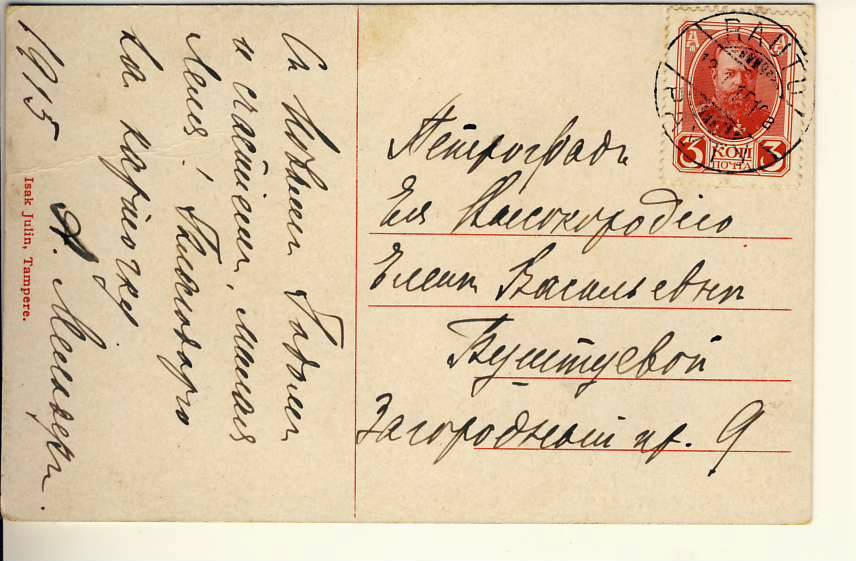 Съ Новымъ Годомъ
и счастіемъ, милая
Леля! Благодарю
за карточку
А.
1915
Isak Julin, Tampere.
RAUTU
3 КОП 3
ПОЧТА
Петроградъ
Ея Высокородію
Еленѣ Васильевнѣ
Загородный пр. 9